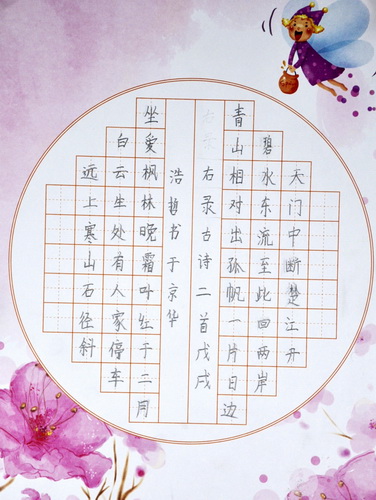 天门中断楚江开
碧水东流至此回两岸
青山相对出孤帆一片日边
远上寒山石径斜
白云生处有人家停车
坐爱枫林晚霜叶红于二月
右录古诗二首戊戌
浩哲书于京华